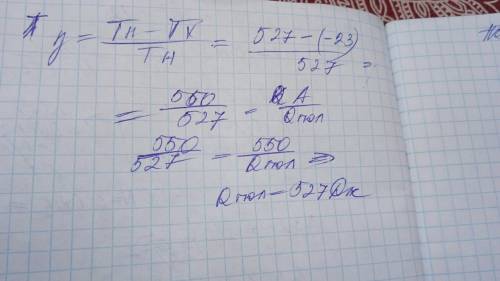 η = Тн - Тх / Тн = 527 - (-23) / 527 =
= 550 / 527 = A / Qпол
550 / 527 = 550 / Qпол =>
Qпол = 527 Дж